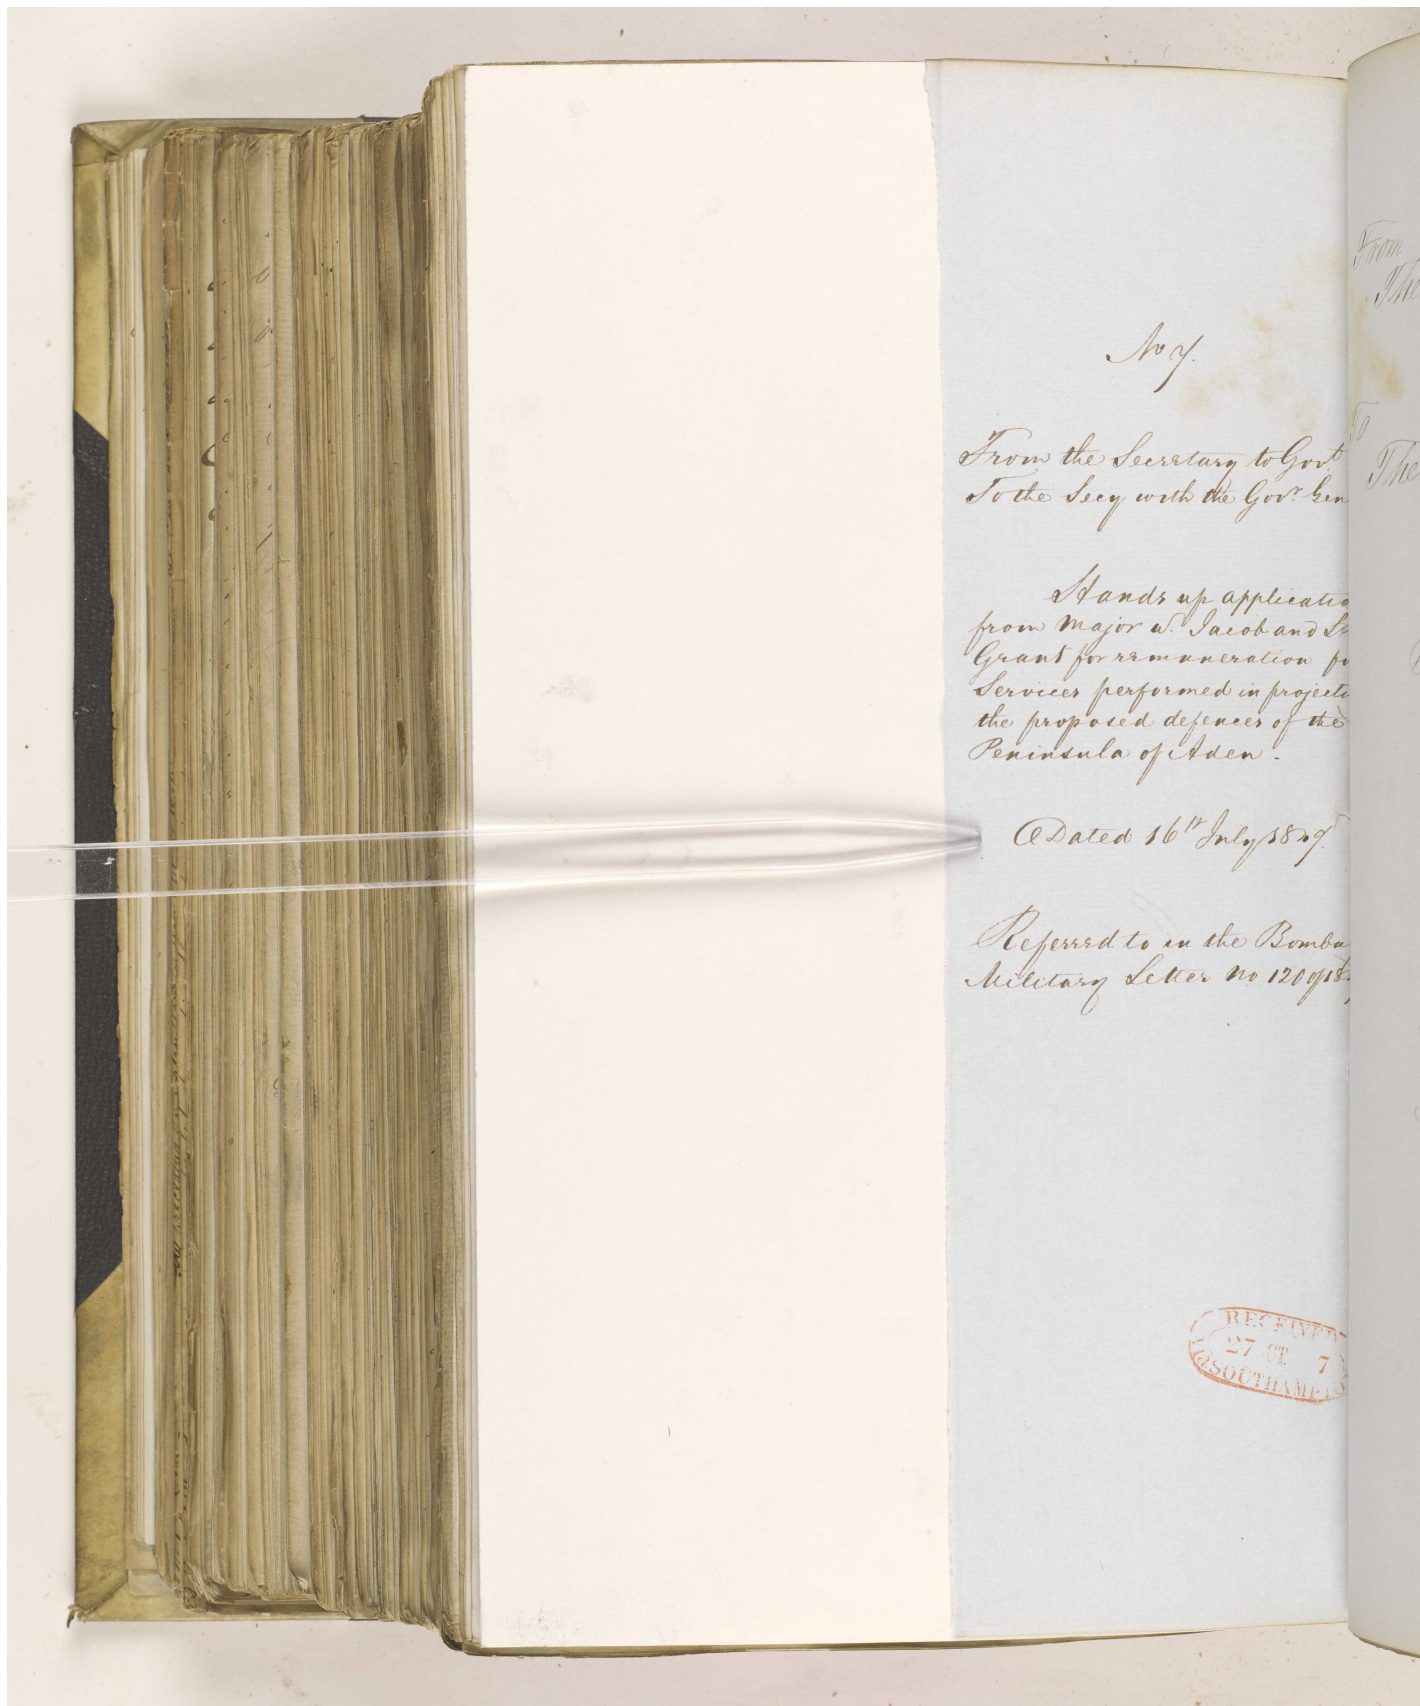 No 7.
From the Secretary to Govt.
To the Secy with the Govr. Gen
Hands up applicatio
from Major W. Jacob and Lt
Grant for remuneration fo
Services performed in projecti
the proposed defences of the
Peninsula of Aden.
Dated 16th July 1847.
Referred to in the Bomba
Military Letter No 120 of 184
RECEIVED
27 CT 7
SOUTHAMPTO
From
The
To
The